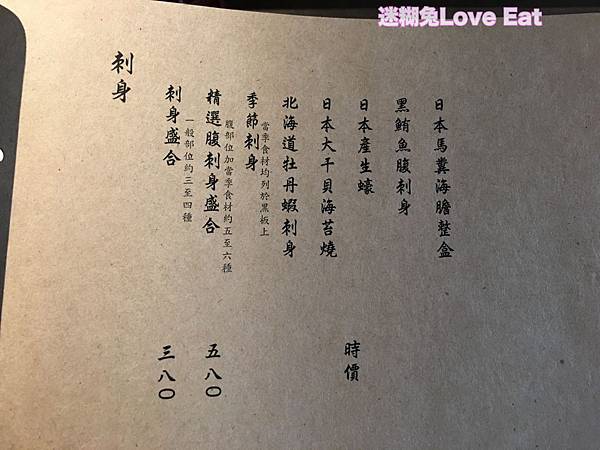 迷糊兔Love Eat
刺身
刺身盛合
一般部位約三至四種
三八〇
精選腹刺身盛合
腹部位加當季食材約五至六種
五八〇
季節刺身
當季食材均列於黑板上
北海道牡丹蝦刺身
日本大干貝海苔燒
日本產生蠔
黑鮪魚腹刺身
日本馬糞海膽整盒
時價